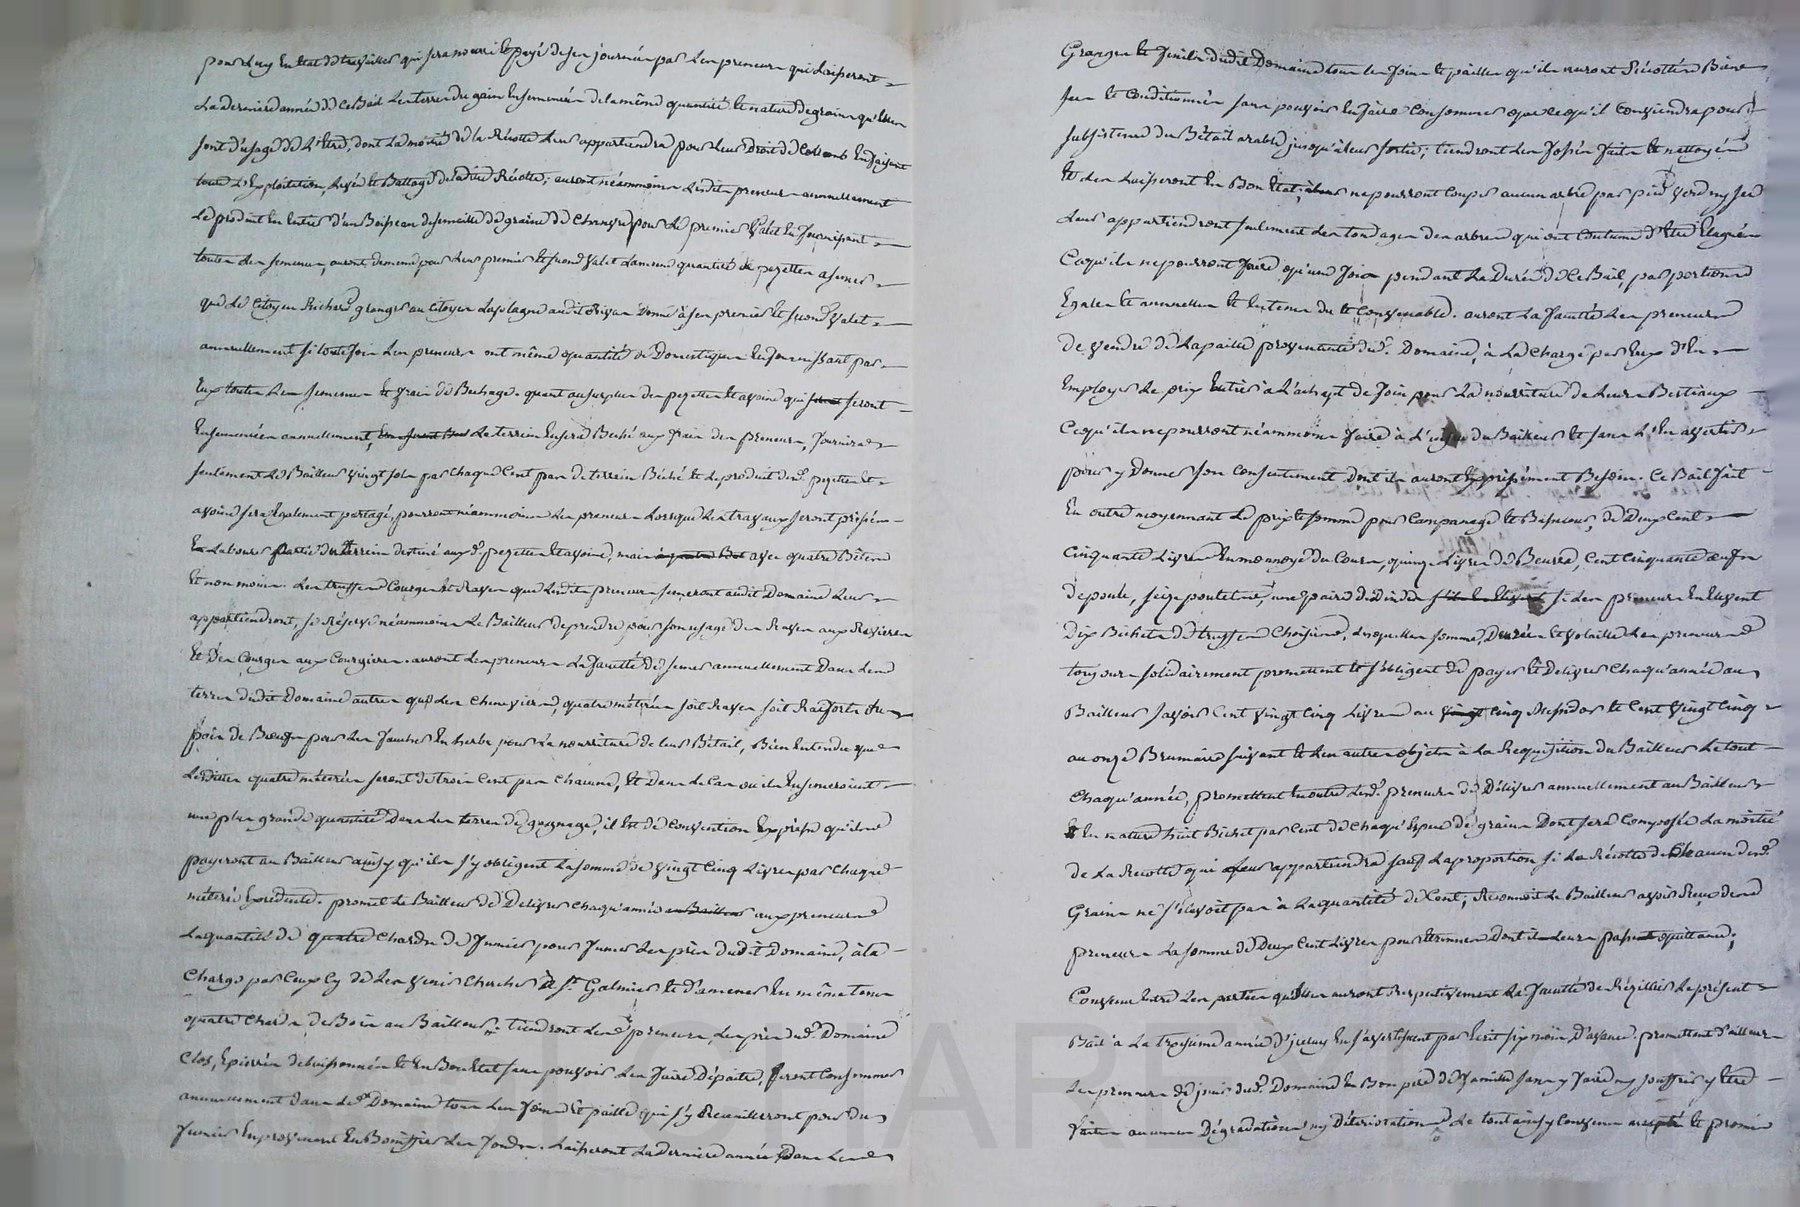 pour luy en etat de travailler qui sera nourri et payé de sa journée par les preneurs qui laisseront
la derniere année de ce Bail les terres du gain ensemencées de la même quantité et nature de grains qu'elles
sont d'usage de l'etre, dont la moitié de la Récolte leur appartiendra pour leur droit de en faisant
toute l'exploitation, levée et Battage de ladite Récolte; auront néammoins lesdits preneurs annuellement
Le produit en entier d'un Boisseau de semaille de graine de Chanvre pour le premier valet en fournissant
toutes les semences, auront de meme pour leurs premier et second valet la meme quantité de pezettes a semer
que le Citoyen Richard granger au citoyen Laplagne audit donne à ses premier et second valet
annuellement si toute fois les preneurs ont même quantité de Domestiques en fournissant par
Eux toutes les semences et frais de Bechage. quant au surplus des pezettes et avoine qui seront
Ensemencées annuellement, le terrein en sera Beché aux frais des preneurs, fournira
seulement le Bailleur vingt sols par chaque Cent pas de terrein Béché et le produit desd. pezettes et
avoine sera Egalement partagé, pourront néammoins les preneurs lorsque les travaux seront pressés
Labourer partie du terrein destiné auxd. pezettes et avoine, mais avec quatre Bêtes
Et non moins. les truffes Courges et Raves que lesdits preneurs semeront audit Domaine leur
appartiendront, se réserve néammoins le Bailleur de prendre pour son usage des Raves aux Ravieres
Et des Courges aux Courgieres. auront les preneurs la faculté de semer annuellement dans les
terres dudit Domaine autres que les Chenevieres, quatre métérées soit Raves soit Raiforts ou
pois de Bœufs pour les faucher en herbe pour la nourriture de leur Bétail, Bien entendu que
lesdites quatre méterées seront de trois Cent pas chacune, Et dans le Cas ou ils ensemeroient
une plus grande quantité dans les terres de gagnage, il Est de Convention Expresse qu'ils
payeront au Bailleur ainsy qu'ils s'y obligent la somme de vingt Cinq Livres par chaque
méterée Excedente. promet le Bailleur de Délivrer chaqu'année aux preneurs
la quantité de quatre Chards de fumier pour fumer les prés dudit Domaine, à la
Charge par Ceux cy de les venir Chercher à St. Galmier et d'amener en même tems
quatre Chards de Bois au Bailleur; tiendront lesd. preneurs, les prés dud. Domaine
Clos, Epierrés debuissonnés et en Bon Etat sans pouvoir les faire Dépaitre, feront Consommer
annuellement dans led. Domaine tous les foins et paille qui s'y Recueilleront pour du
fumier en provenant En Bonifier les fonds. Laisseront la derniere année dans les
Granges et feniers dudit Domaine tous les foins et pailles qu'ils auront Récoltés Biens
secs et Conditionnés sans pouvoir en faire Consommer que ce qu'il Conviendra pour
subsistence du Bétail arable jusqu'à leur sortie; tiendront les fossés faits et nettoyés
Et les laisseront en Bon Etat, ne pourront Couper aucun arbre par pied verd ny sec
Leur appartiendront seulement les tondages des arbres qui ont Coutume d'Etre Elagués
Ce qu'ils ne pourront faire qu'une fois pendant la Durée de ce Bail, par portions
Egales et annuelles et en tems du et Convenable. auront la faculté les preneurs
de vendre de la paille provenante dud. Domaine, à la charge par Eux d'En
Employer le prix Entier à l'achapt de foin pour la nourriture de leurs Bestiaux
Ce qu'ils ne pourront néammoins faire à l'insçu du Bailleur et sans l'En avertir
pour y Donner son Consentement dont ils auront Expressément Besoin. Ce Bail fait
En outre moyennant le prix et somme pour Campanage et de Deux Cent
Cinquante Livres En monnoye du Cours, quinze Livres de Beurre, Cent Cinquante œufs
de poule, seize poulets, une paire de dindes si les preneurs en levent
dix Bichets de truffes Choisies, lesquelles somme, Denrées et volaille les preneurs
toujours solidairement promettent et s'obligent de payer et Delivrer chaqu'année au
Bailleur savoir Cent vingt Cinq Livres au Cinq Messidor et Cent vingt Cinq
au onze Brumaire suivant et les autres objets à la Requisition du Bailleur Le tout
chaqu'année, promettent en outre lesd. preneurs de Délivrer annuellement au Bailleur
En nature huit Bichet par Cent de chaqu'Espece de grains Dont sera Composée la moitié
de la Récolte qui leur appartiendra sauf la proportion si la Récolte de chacun desd.
Grains ne s'élevoit pas à la quantité de Cent, Reconnoit le Bailleur avoir Reçu des
preneurs la somme de Deux Cent Livres pour Etrennes Dont il Leurs passe quittance;
Convenu Entre les parties qu'Elles auront Respectivement la faculté de Rézilier le présent
Bail à la troisieme année d'jceluy En s'avertissant par Ecrit six mois d'avance. promettent d'ailleurs
Les preneurs de jouir dud. Domaine En Bon pere de famille sans y faire ny souffrir y Etre
faites aucunes Dégradations ny Déteriorations Le tout ainsy Convenu accepté et promis